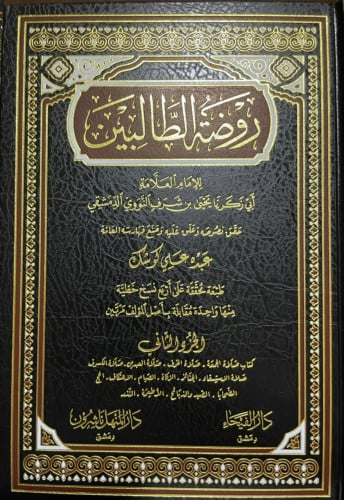 روضة الطالبين
للإمام العلامة
أبي زكريا يحيى بن شرف النووي الدمشقي
حقق نصوصه وعلق عليه وصنع فهارسه العامة
عبده علي كوشك
طبعة محققة على أربع نسخ خطية
منها واحدة مقابلة بأصل المؤلف مرتين
الجزء الثاني
كتاب صلاة الجمعة . صلاة الخوف . صلاة العيدين . صلاة الكسوف
صلاة الاستسقاء . الجنائز . الزكاة . الصيام . الاعتكاف . الحج
الضحايا . الصيد والذبائح . الأطعمة . النذر
دار الفيحاء
دمشق
دار المنهل ناشرون
دمشق